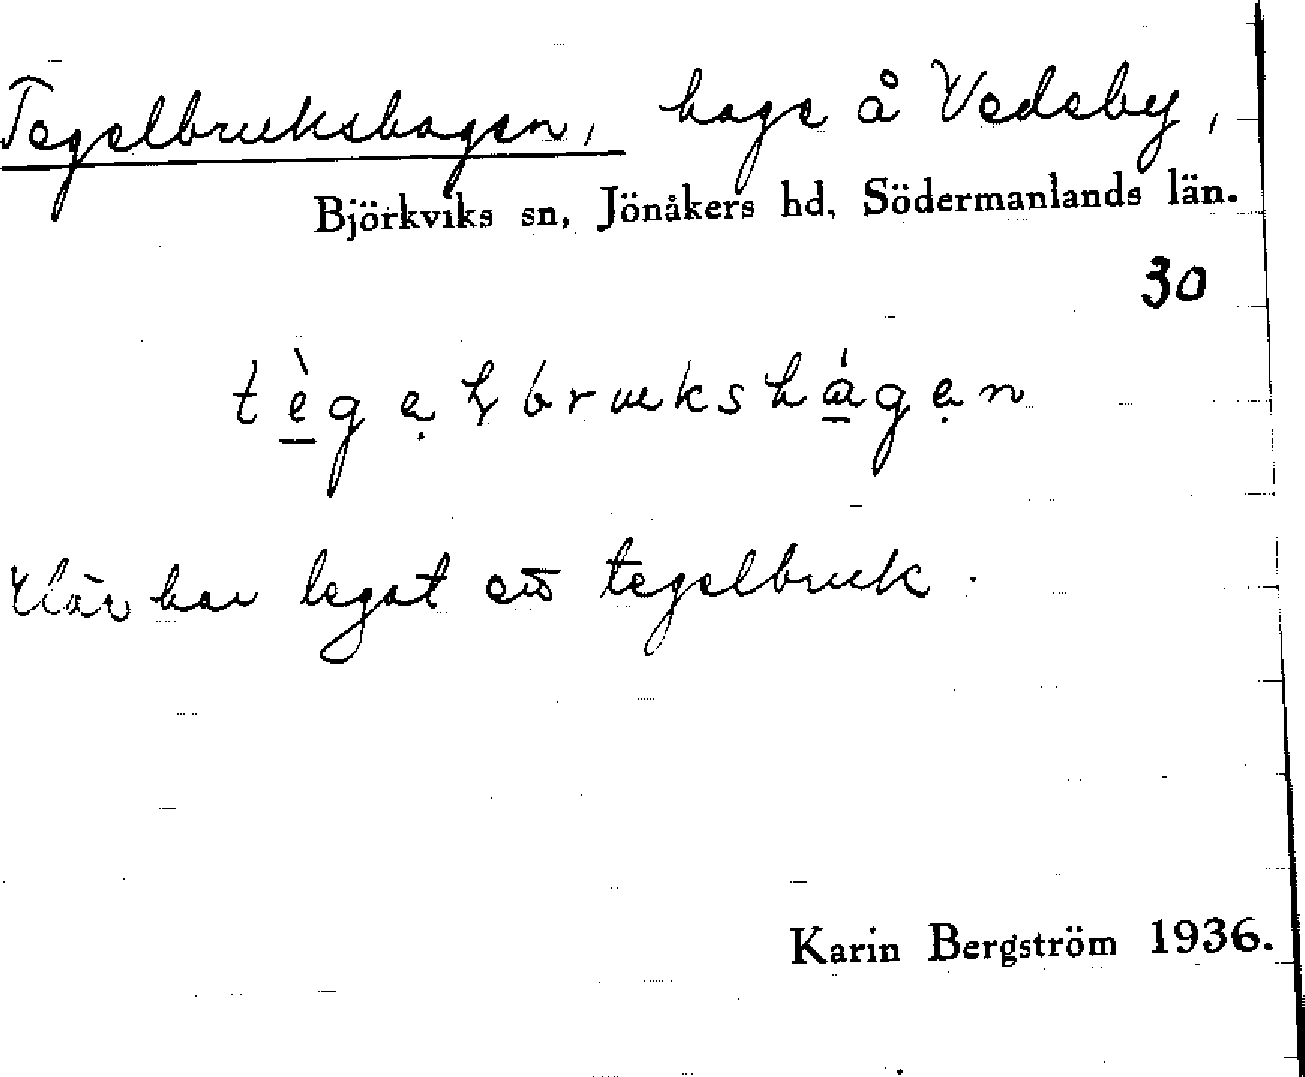 Tegelbrukshagen, hage å Vedeby,
Björkviks sn, Jönåkers hd, Södermanlands län.
30
tègeḷbrukshágen
Här har legat ett tegelbruk.
Karin Bergström 1936.